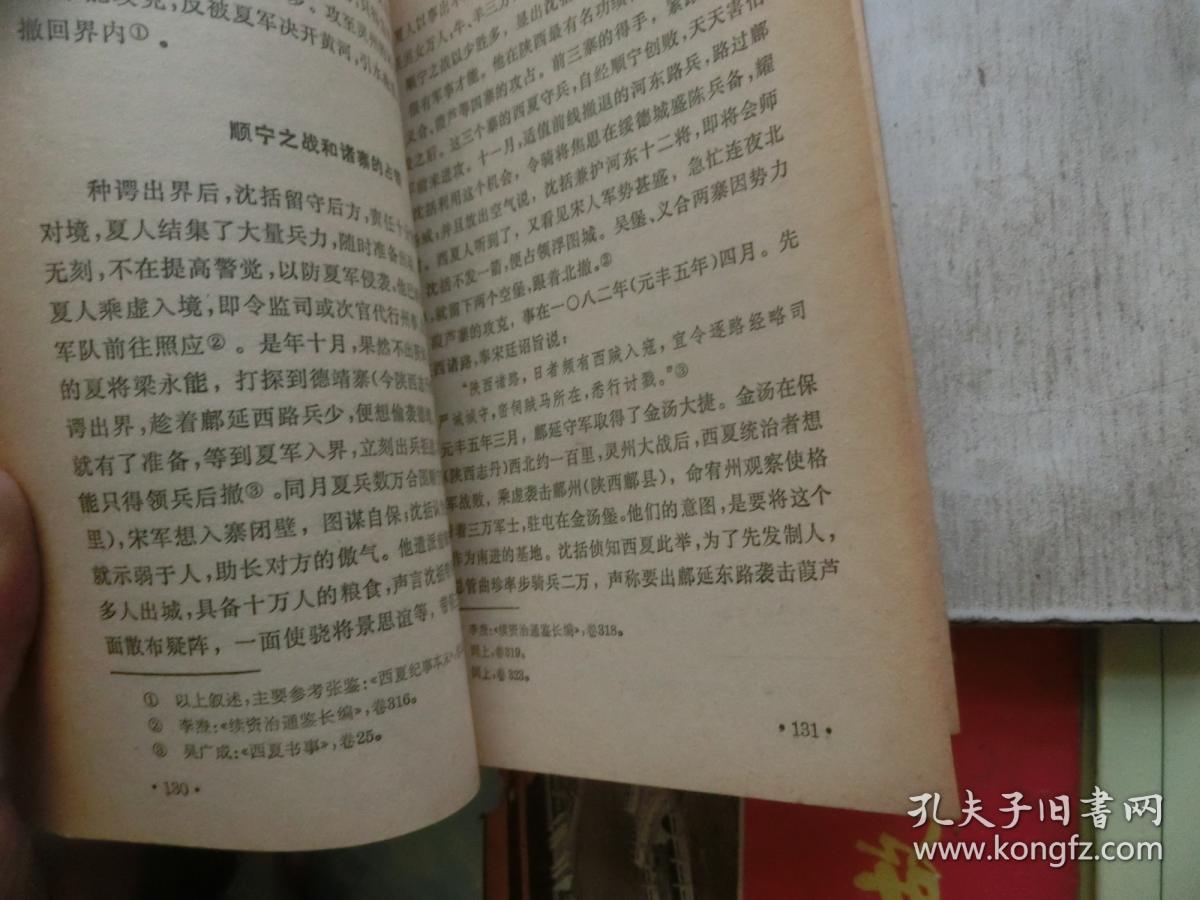 撤回界内①。
反被夏军决开黄河,引水
顺宁之战和诸寨的占
种谔出界后,沈括留守后方,责任十
对境,夏人结集了大量兵力,随时准备出
无刻,不在提高警觉,以防夏军侵袭。他已
夏人乘虚入境,即令监司或次官代行州事
军队前往照应②。是年十月,果然不出所
的夏将梁永能,打探到德靖寨(今陕西志
谔出界,趁着鄜延西路兵少,便想偷袭德
就有了准备,等到夏军入界,立刻出兵
能只得领兵后撤③。同月夏兵数万合围顺
里),宋军想入寨闭壁,图谋自保;沈括认
就示弱于人,助长对方的傲气。他遣派
多人出城,具备十万人的粮食,声言沈括
面散布疑阵,一面使骁将景思谊等,带
① 以上叙述,主要参考张鉴:《西夏纪事本末》,
② 李焘:《续资治通鉴长编》,卷316。
③ 吴广成:《西夏书事》,卷25。
·130·
夏人以事出不
男女万人,牛、羊三万
顺宁之战以少胜多,显出沈括
很有军事才能。他在陕西最有名功绩
义合、葭芦等四寨的攻占。前三寨的得手,紧跟
之后。这三个寨的西夏守兵,自经顺宁创败,天天害怕
前来进攻。十一月,适值前线撤退的河东路兵,路过鄜
沈括利用这个机会,令骑将焦思在绥德城盛陈兵备,耀
威,并且放出空气说,沈括兼护河东十二将,即将会师
。西夏人听到了,又看见宋人军势甚盛,急忙连夜北
沈括不发一箭,便占领浮图城。吴堡、义合两寨因势力
,就留下两个空堡,跟着北撤。②
葭芦寨的攻克,事在一〇八二年(元丰五年)四月。先
西诸路,奉宋廷诏旨说:
“陕西诸路,日者频有西贼入寇,宜令逐路经略司
严诫城守,密伺贼马所在,悉行讨戮。”③
元丰五年三月,鄜延守军取得了金汤大捷。金汤在保
(陕西志丹)西北约一百里,灵州大战后,西夏统治者想
军战败,乘虚袭击鄜州(陕西鄜县),命宥州观察使格
着三万军士,驻屯在金汤堡。他们的意图,是要将这个
作为南进的基地。沈括侦知西夏此举,为了先发制人,
总管曲珍率步骑兵二万,声称要出鄜延东路袭击葭芦
李焘:《续资治通鉴长编》,卷318。
同上,卷319。
同上,卷323。
·131·
孔夫子旧书网
www.kongfz.com